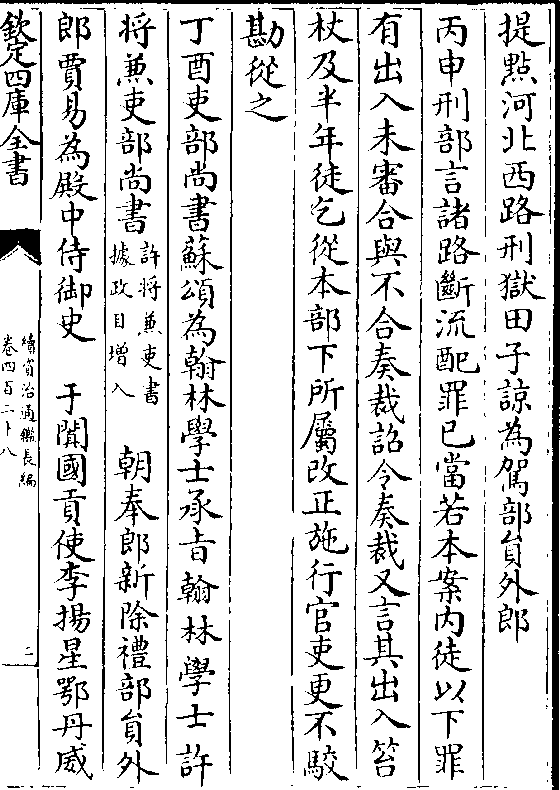 提㸃河北西路刑獄田子諒為駕部員外郎
丙申刑部言諸路斷流配罪已當若本案内徒以下罪
有出入未審合與不合奏裁詔令奏裁又言其出入笞
杖及半年徒乞從本部下所屬改正施行官吏更不駮
勘從之
丁酉吏部尚書蘇頌為翰林學士承㫖翰林學士許
將兼吏部尚書許將兼吏書據政目增入 朝奉郎新除禮部員外
郎賈易為殿中侍御史 于闐國貢使李揚星鄂丹威
欽定四庫全書
續資治通鑑長編
卷四百二十八
二